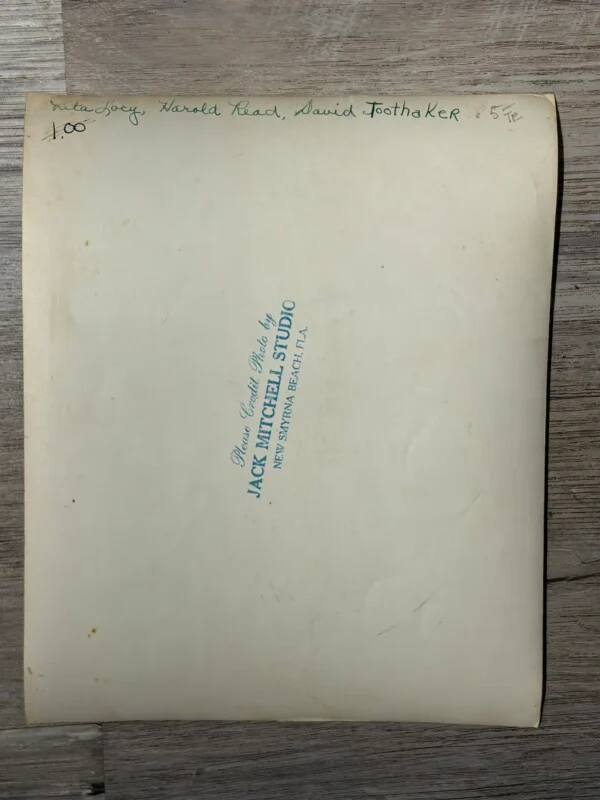 Lacy, Harold Read, David Toothaker 5
1.00
Please Credit Photo by
JACK MITCHELL STUDIO
NEW SMYRNA BEACH, FLA.